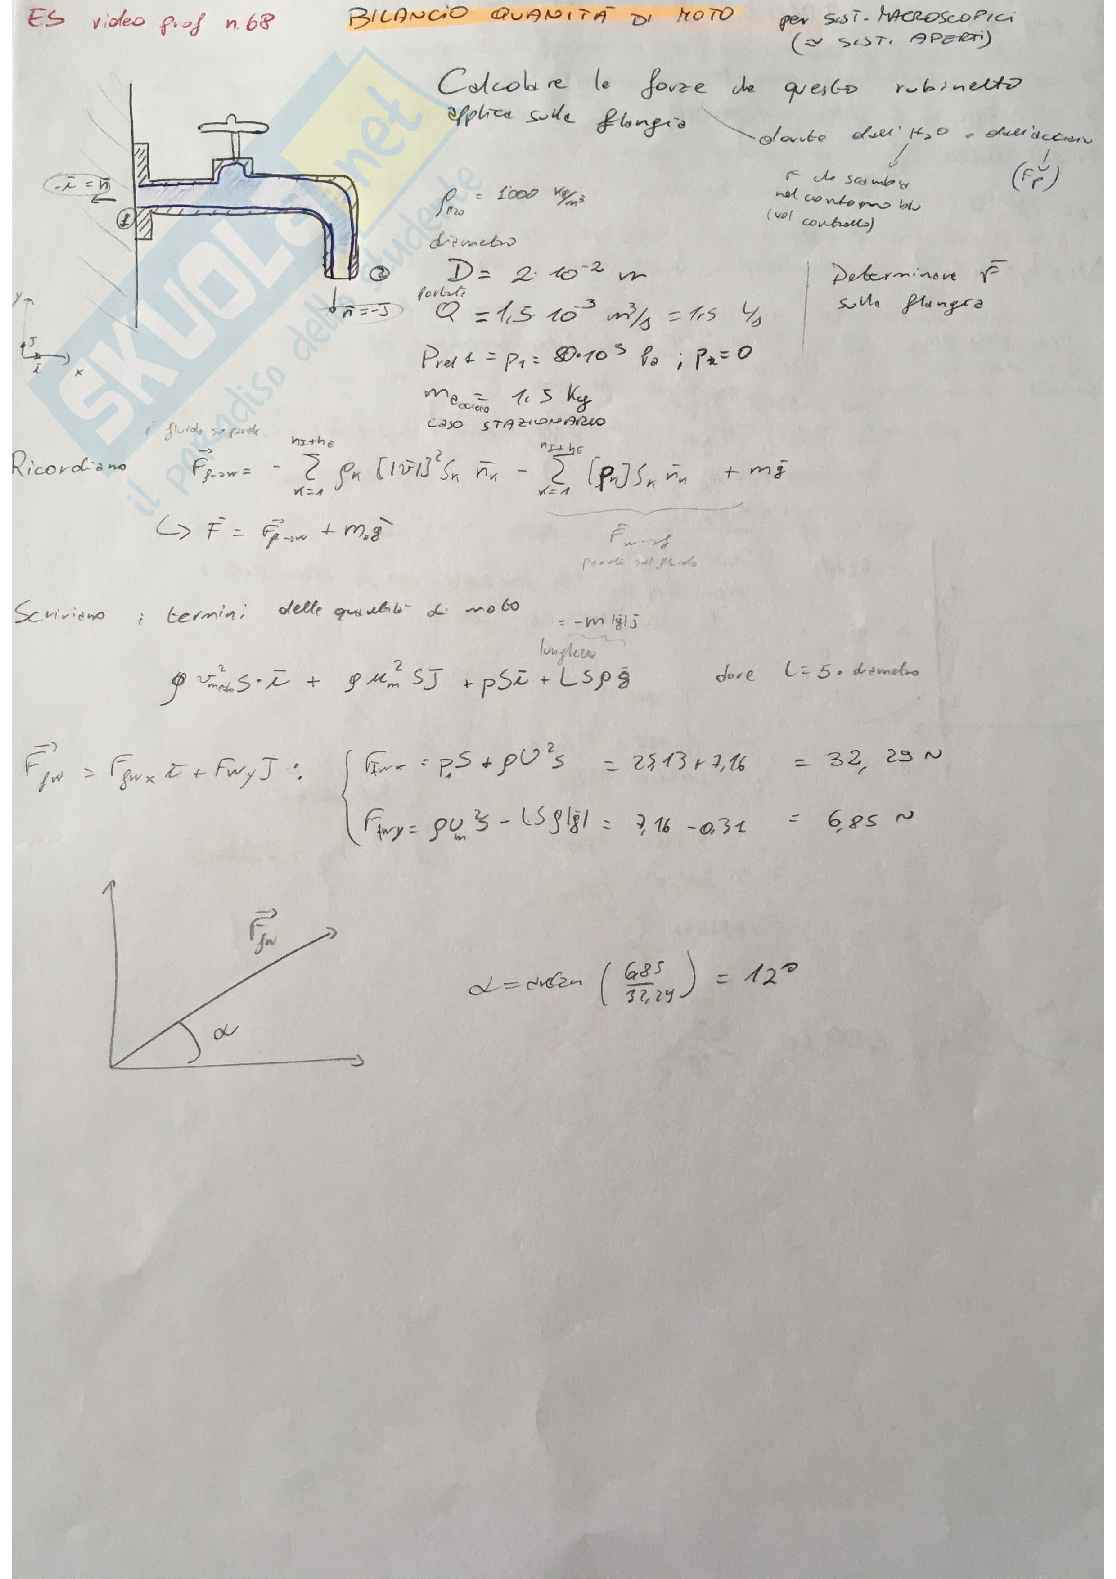 ES video prof n.68 BILANCIO QUANTITÀ DI MOTO per SIST. MACROSCOPICI
(≈ SIST. APERTI)
Calcolare le forze che questo rubinetto
applica sulla flangia
dovute dall'H2O e dall'acciaio
F che scambia
nel contorno blu
(vol controllo)
(Fp)
-i = n
①
②
n = -J
y
J
i
x
ρH2O = 1000 kg/m³
diametro
D = 2·10⁻² m
portata
Q = 1,5·10⁻³ m³/s = 1,5 L/s
Prel 1 = p1 = 80·10³ Pa ; p2 = 0
macciaio = 1,5 Kg
CASO STAZIONARIO
Determinare F
sulla flangia
Ricordiamo Ff→w = - Σ ρk [|v|]² Sk nk - Σ [pk] Sk nk + mg
nI+nE
k=1
nI+nE
k=1
↳ F = Ff→w + ma g
Fw→f
Scriviamo i termini delle quantità di moto
= -m|g|j
lunghezza
ρ v²media S·i + ρ um² SJ + pSi + LSρg dove L = 5·diametro
Ffw = Ffwx i + Fwy J : Ffwx = p1S + ρU²S = 25,13 + 7,16 = 32,29 N
Ffwy = ρUm²S - LSρ|g| = 7,16 - 0,31 = 6,85 N
Ffw
α
α = arctan (6,85/32,29) = 12°
SKUOLA.net
il paradiso dello studente